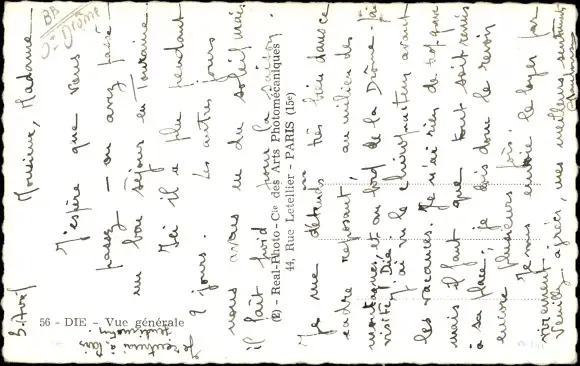 BB
D-Drôme
5 Avril
Monsieur, Madame
J'espère que vous
passez - ou avez passé
un bon séjour en Touraine.
Ici il a plu pendant
2 jours. Les autres jours
nous avons eu du soleil mais
il fait froid pour la saison.
Je me détends très bien dans ce
cadre reposant, au milieu des
montagnes, et au bord de la Drôme - j'ai
visité Die.
J'ai vu le chirurgien avant
les vacances. Je n'ai rien de
mais il faut que tout soit remis
à sa place, je dois donc le revoir
encore plusieurs fois.
Je vous envoie le loyer par
virement.
Veuillez agréer, mes meilleurs sentiments
Je rentrerai à Paris
56 - DIE - Vue générale
(R) - Real-Photo - Cie des Arts Photomécaniques
44, Rue Letellier - PARIS (15e)